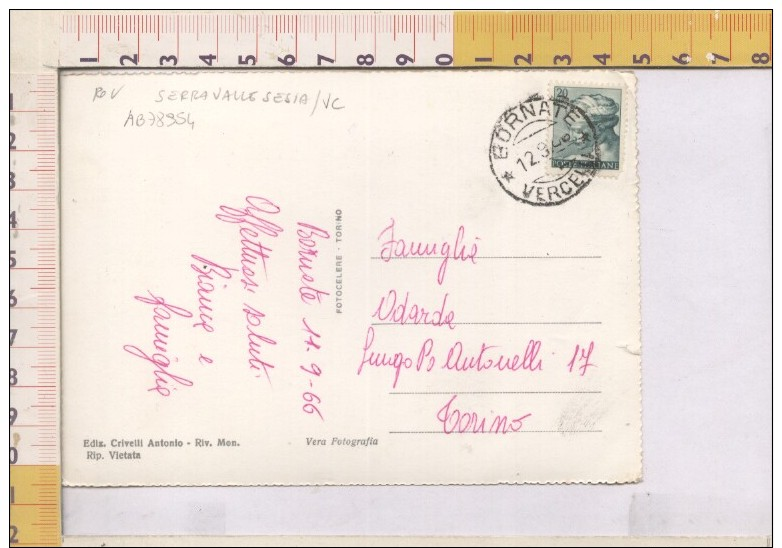 Rov SERRAVALLE SESIA/VC
AB78954
20
POSTE ITALIANE
BORNATE
12.9.66
VERCELLI
Bornate 11-9-66
Affettuosi saluti
Bianca e
famiglia
FOTOCELERE - TORINO
Famiglia
Odarda
Lungo Po Antonelli 17
Torino
Ediz. Crivelli Antonio - Riv. Mon.
Rip. Vietata
Vera Fotografia
1 2 3 4 5 6 7 8 9 0 1 2 3 4 5 6 7 8
1
2
3
4
5
6
7
8
9
0
1
2